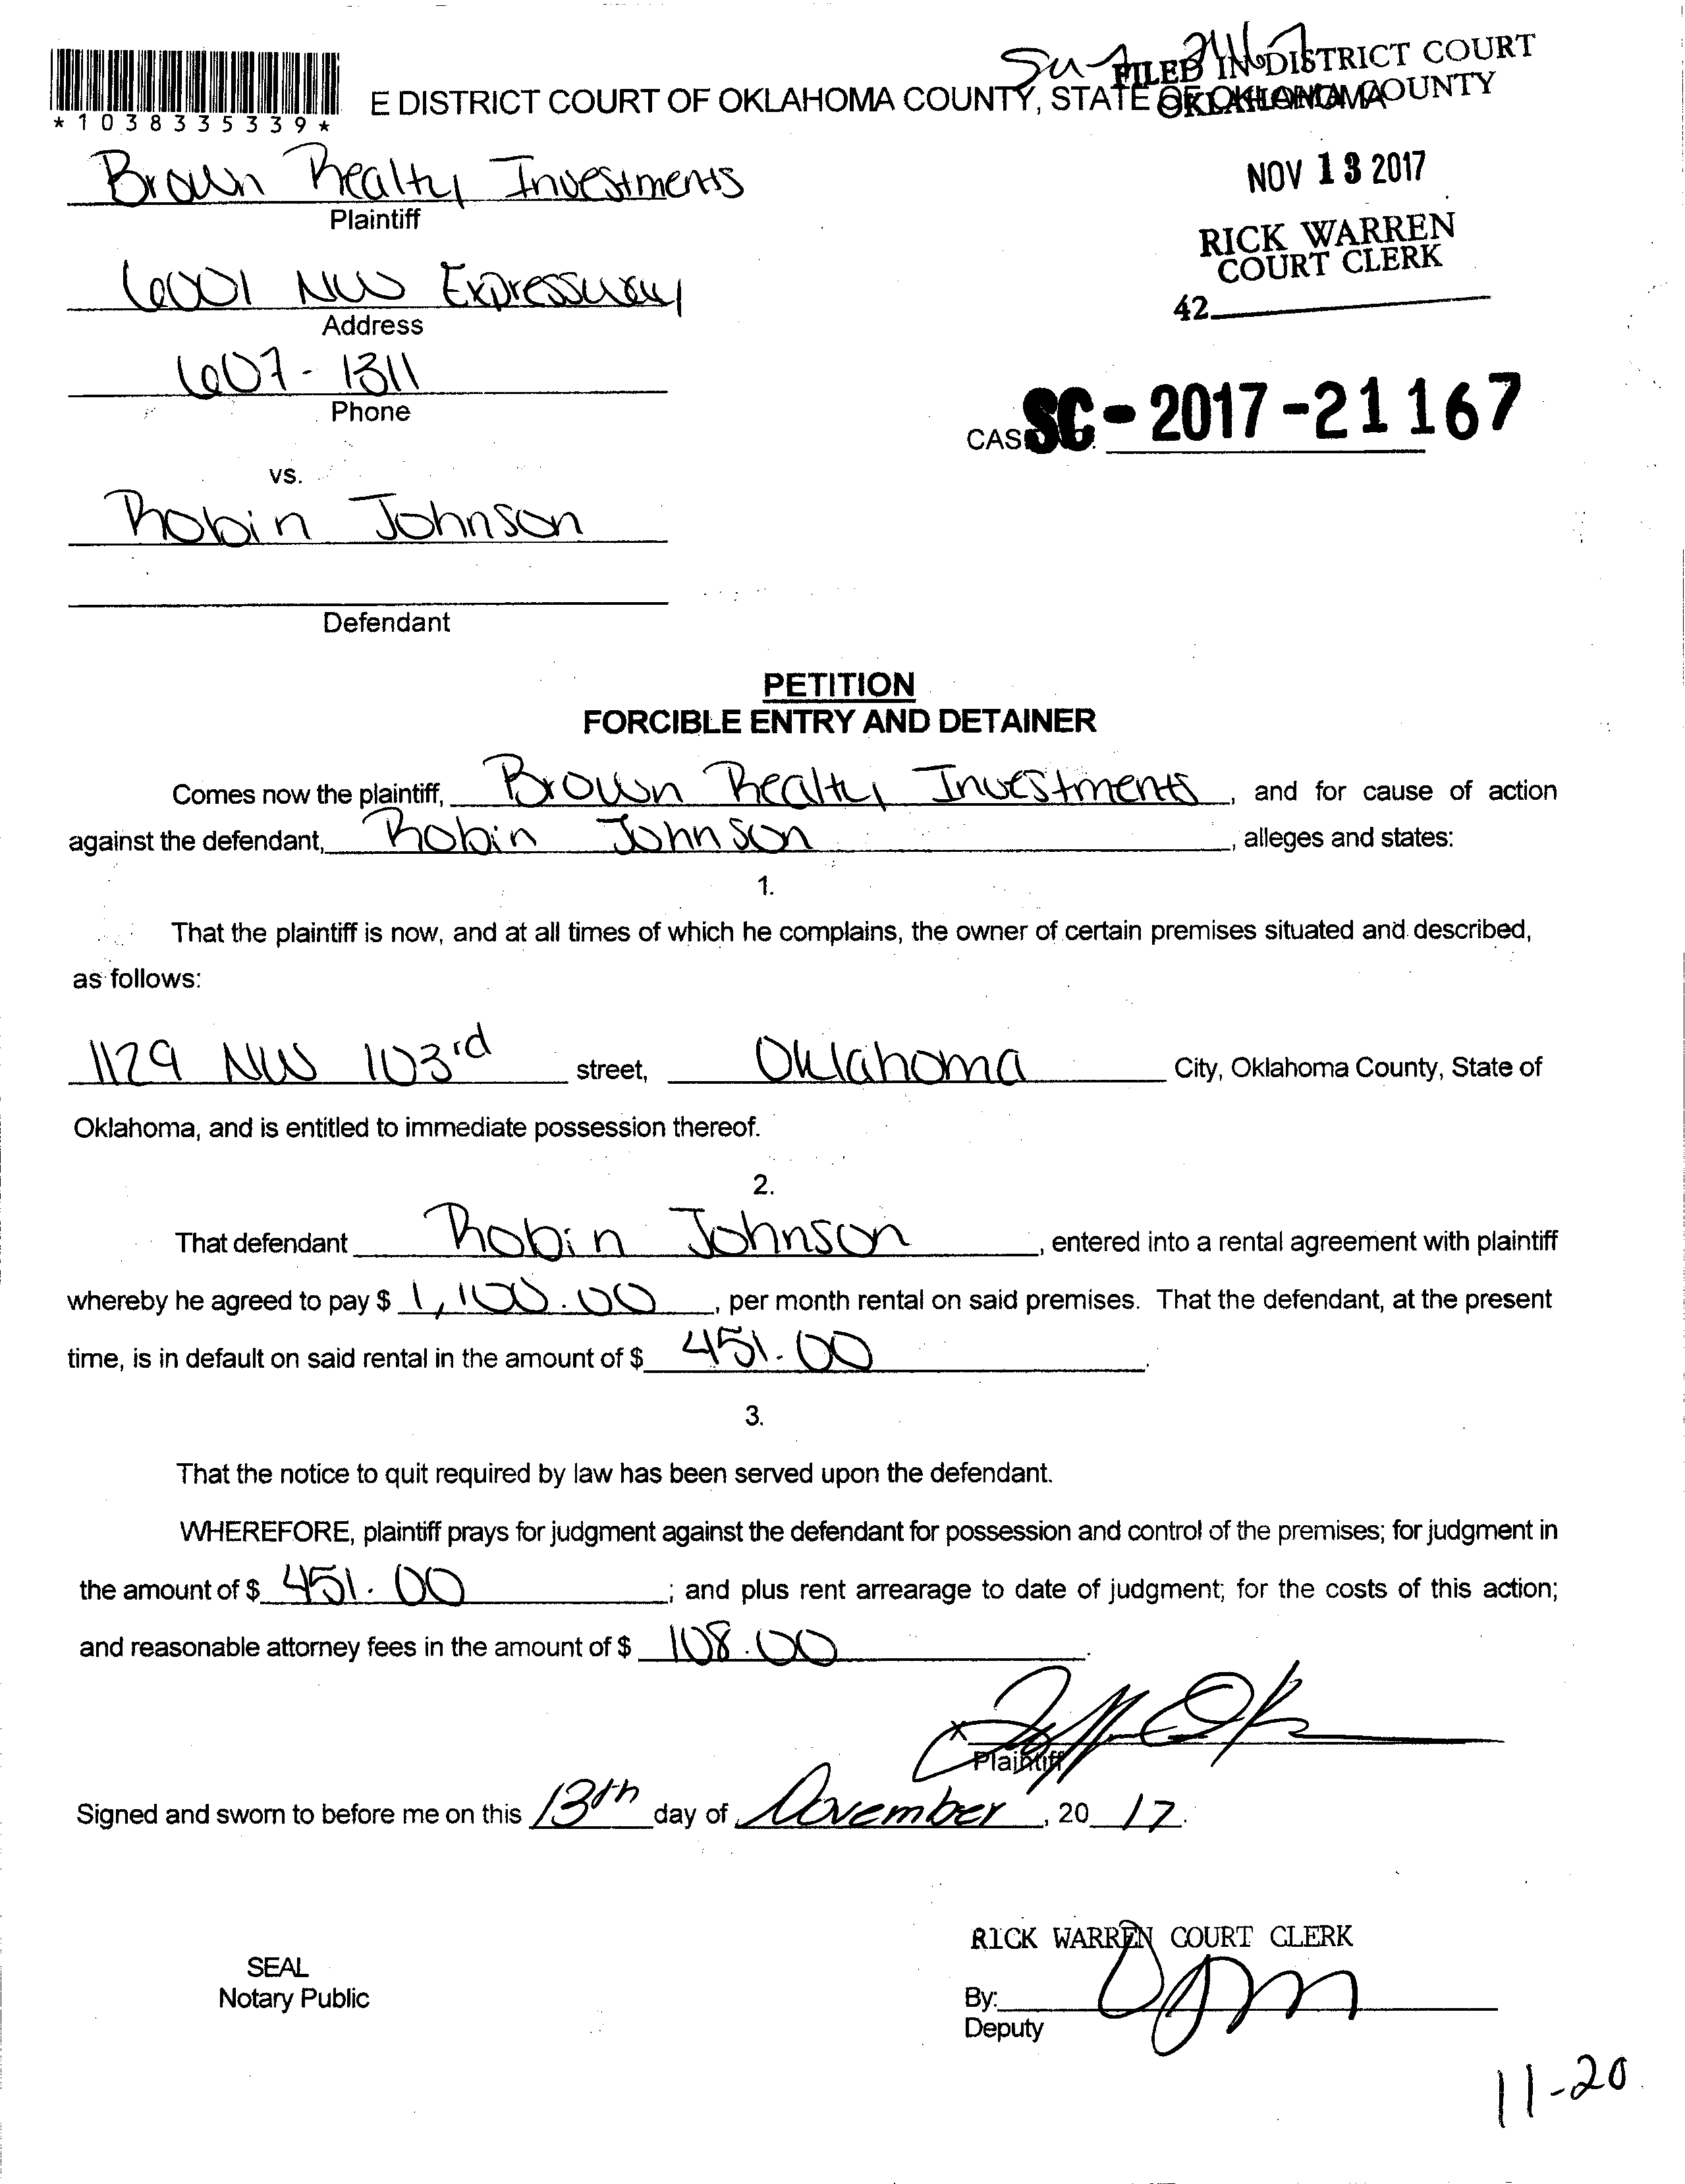 FILED IN DISTRICT COURT
E DISTRICT COURT OF OKLAHOMA COUNTY, STATE OF OKLAHOMA
OKLAHOMA COUNTY
*1038335339*
Brown Realty Investments
Plaintiff
NOV 13 2017
RICK WARREN
COURT CLERK
6001 NW Expressway
Address
42
607-1311
Phone
CAS SC-2017-21167
vs.
Robin Johnson
Defendant
PETITION
FORCIBLE ENTRY AND DETAINER
Comes now the plaintiff, Brown Realty Investments, and for cause of action
against the defendant, Robin Johnson, alleges and states:
1.
That the plaintiff is now, and at all times of which he complains, the owner of certain premises situated and described,
as follows:
1129 NW 103rd street, Oklahoma City, Oklahoma County, State of
Oklahoma, and is entitled to immediate possession thereof.
2.
That defendant Robin Johnson, entered into a rental agreement with plaintiff
whereby he agreed to pay $ 1,100.00, per month rental on said premises. That the defendant, at the present
time, is in default on said rental in the amount of $ 451.00.
3.
That the notice to quit required by law has been served upon the defendant.
WHEREFORE, plaintiff prays for judgment against the defendant for possession and control of the premises; for judgment in
the amount of $ 451.00; and plus rent arrearage to date of judgment; for the costs of this action;
and reasonable attorney fees in the amount of $ 108.00.
X
Plaintiff
Signed and sworn to before me on this 13th day of November, 20 17.
RICK WARREN COURT CLERK
SEAL
Notary Public
By:
Deputy
11-20